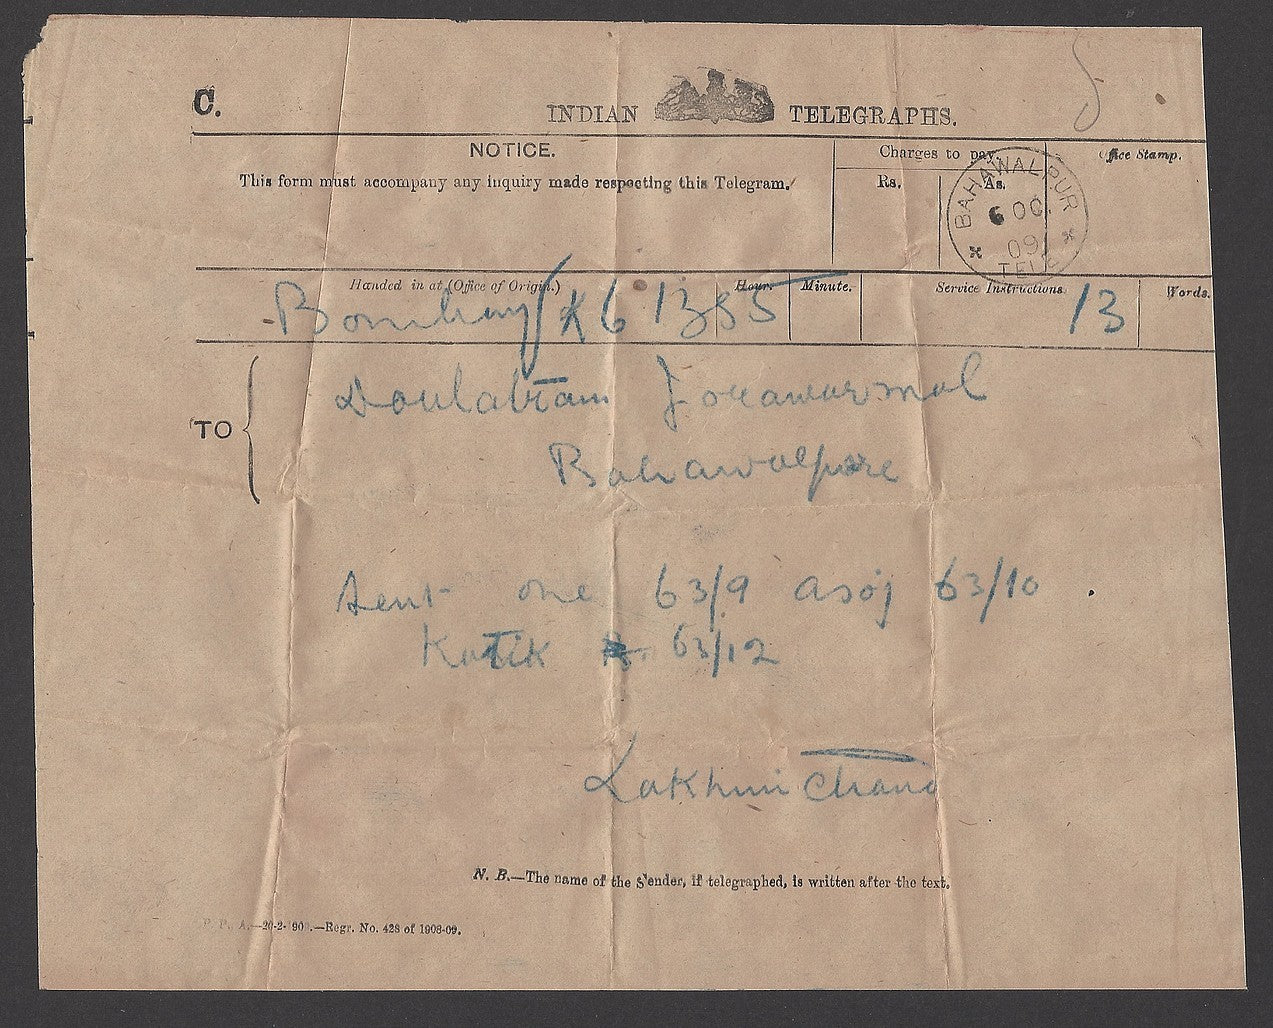 C.
INDIAN TELEGRAPHS.
NOTICE.
This form must accompany any inquiry made respecting this Telegram.
Charges to pay.
Rs. As.
Office Stamp.
BAHAWALPUR
6 OC.
09
TELE
Handed in at (Office of Origin.) Hour. Minute. Service Instructions Words.
Bombay K 6 13 55 13
TO
Doulatram Jorawarmal
Bahawalpore
Sent one 63/9 asoj 63/10
Katik 63/12
Lakhmi Chand
N. B.—The name of the Sender, if telegraphed, is written after the text.
P. P., A.—20-2- 90 .—Regr. No. 428 of 1908-09.